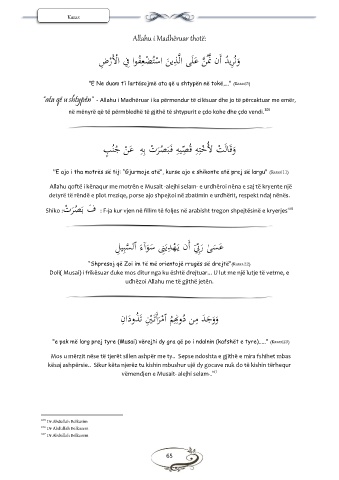 Kasas
Allahu i Madhëruar thotë:
وَنُرِيدُ أَن نَّمُنَّ عَلَى الَّذِينَ اسْتُضْعِفُوا فِي الْأَرْضِ
"E Ne duam t'i lartësojmë ata që u shtypën në tokë,..." (Kasas:5)
"ata që u shtypën" - Allahu i Madhëruar i ka përmendur të cilësuar dhe jo të përcaktuar me emër,
në mënyrë që të përmbledhë të gjithë të shtypurit e çdo kohe dhe çdo vendi.
وَقَالَتْ لِأُخْتِهِ قُصِّيهِ فَبَصُرَتْ بِهِ عَنْ جُنُبٍ
"E ajo i tha motrës së tij: "Gjurmoje atë", kurse ajo e shihonte atë prej së largu" (Kasas:11)
Allahu qoftë i kënaqur me motrën e Musait -alejhi selam- e urdhëroi nëna e saj të kryente një
detyrë të rëndë e plot rreziqe, porse ajo shpejtoi në zbatimin e urdhërit, respekt ndaj nënës.
Shiko :فَ بَصُرَتْ : F-ja kur vjen në fillim të foljes në arabisht tregon shpejtësinë e kryerjes
عَسَىٰ رَبِّي أَن يَهْدِيَنِي سَوَاءَ السَّبِيلِ
"Shpresoj që Zoi im të më orientojë rrugës së drejtë"(Kasas:22)
Doli( Musai) i frikësuar duke mos ditur nga ku është drejtuar... U lut me një lutje të vetme, e
udhëzoi Allahu me të gjithë jetën.
وَوَجَدَ مِن دُونِهِمُ امْرَأَتَيْنِ تَذُودَانِ
"e pak më larg prej tyre (Musai) vërejti dy gra që po i ndalnin (kafshët e tyre),...." (Kasas:23)
Mos u mërzit nëse të tjerët sillen ashpër me ty.. Sepse ndoshta e gjithë e mira fshihet mbas
kësaj ashpërsie.. Sikur këta njerëz tu kishin mbushur ujë dy gocave nuk do të kishin tërhequr
vëmendjen e Musait- alejhi selam-.
Dr Abdullah Belkasem
Dr Abdullah Belkasem
Dr Abdullah Belkasem
65